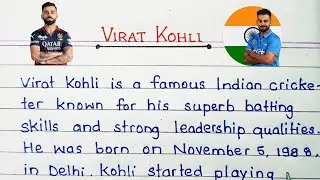 VIRAT KOHLI
Virat Kohli is a famous Indian cricke-
ter known for his superb batting
skills and strong leadership qualities.
He was born on November 5, 1988,
in Delhi. Kohli started playing